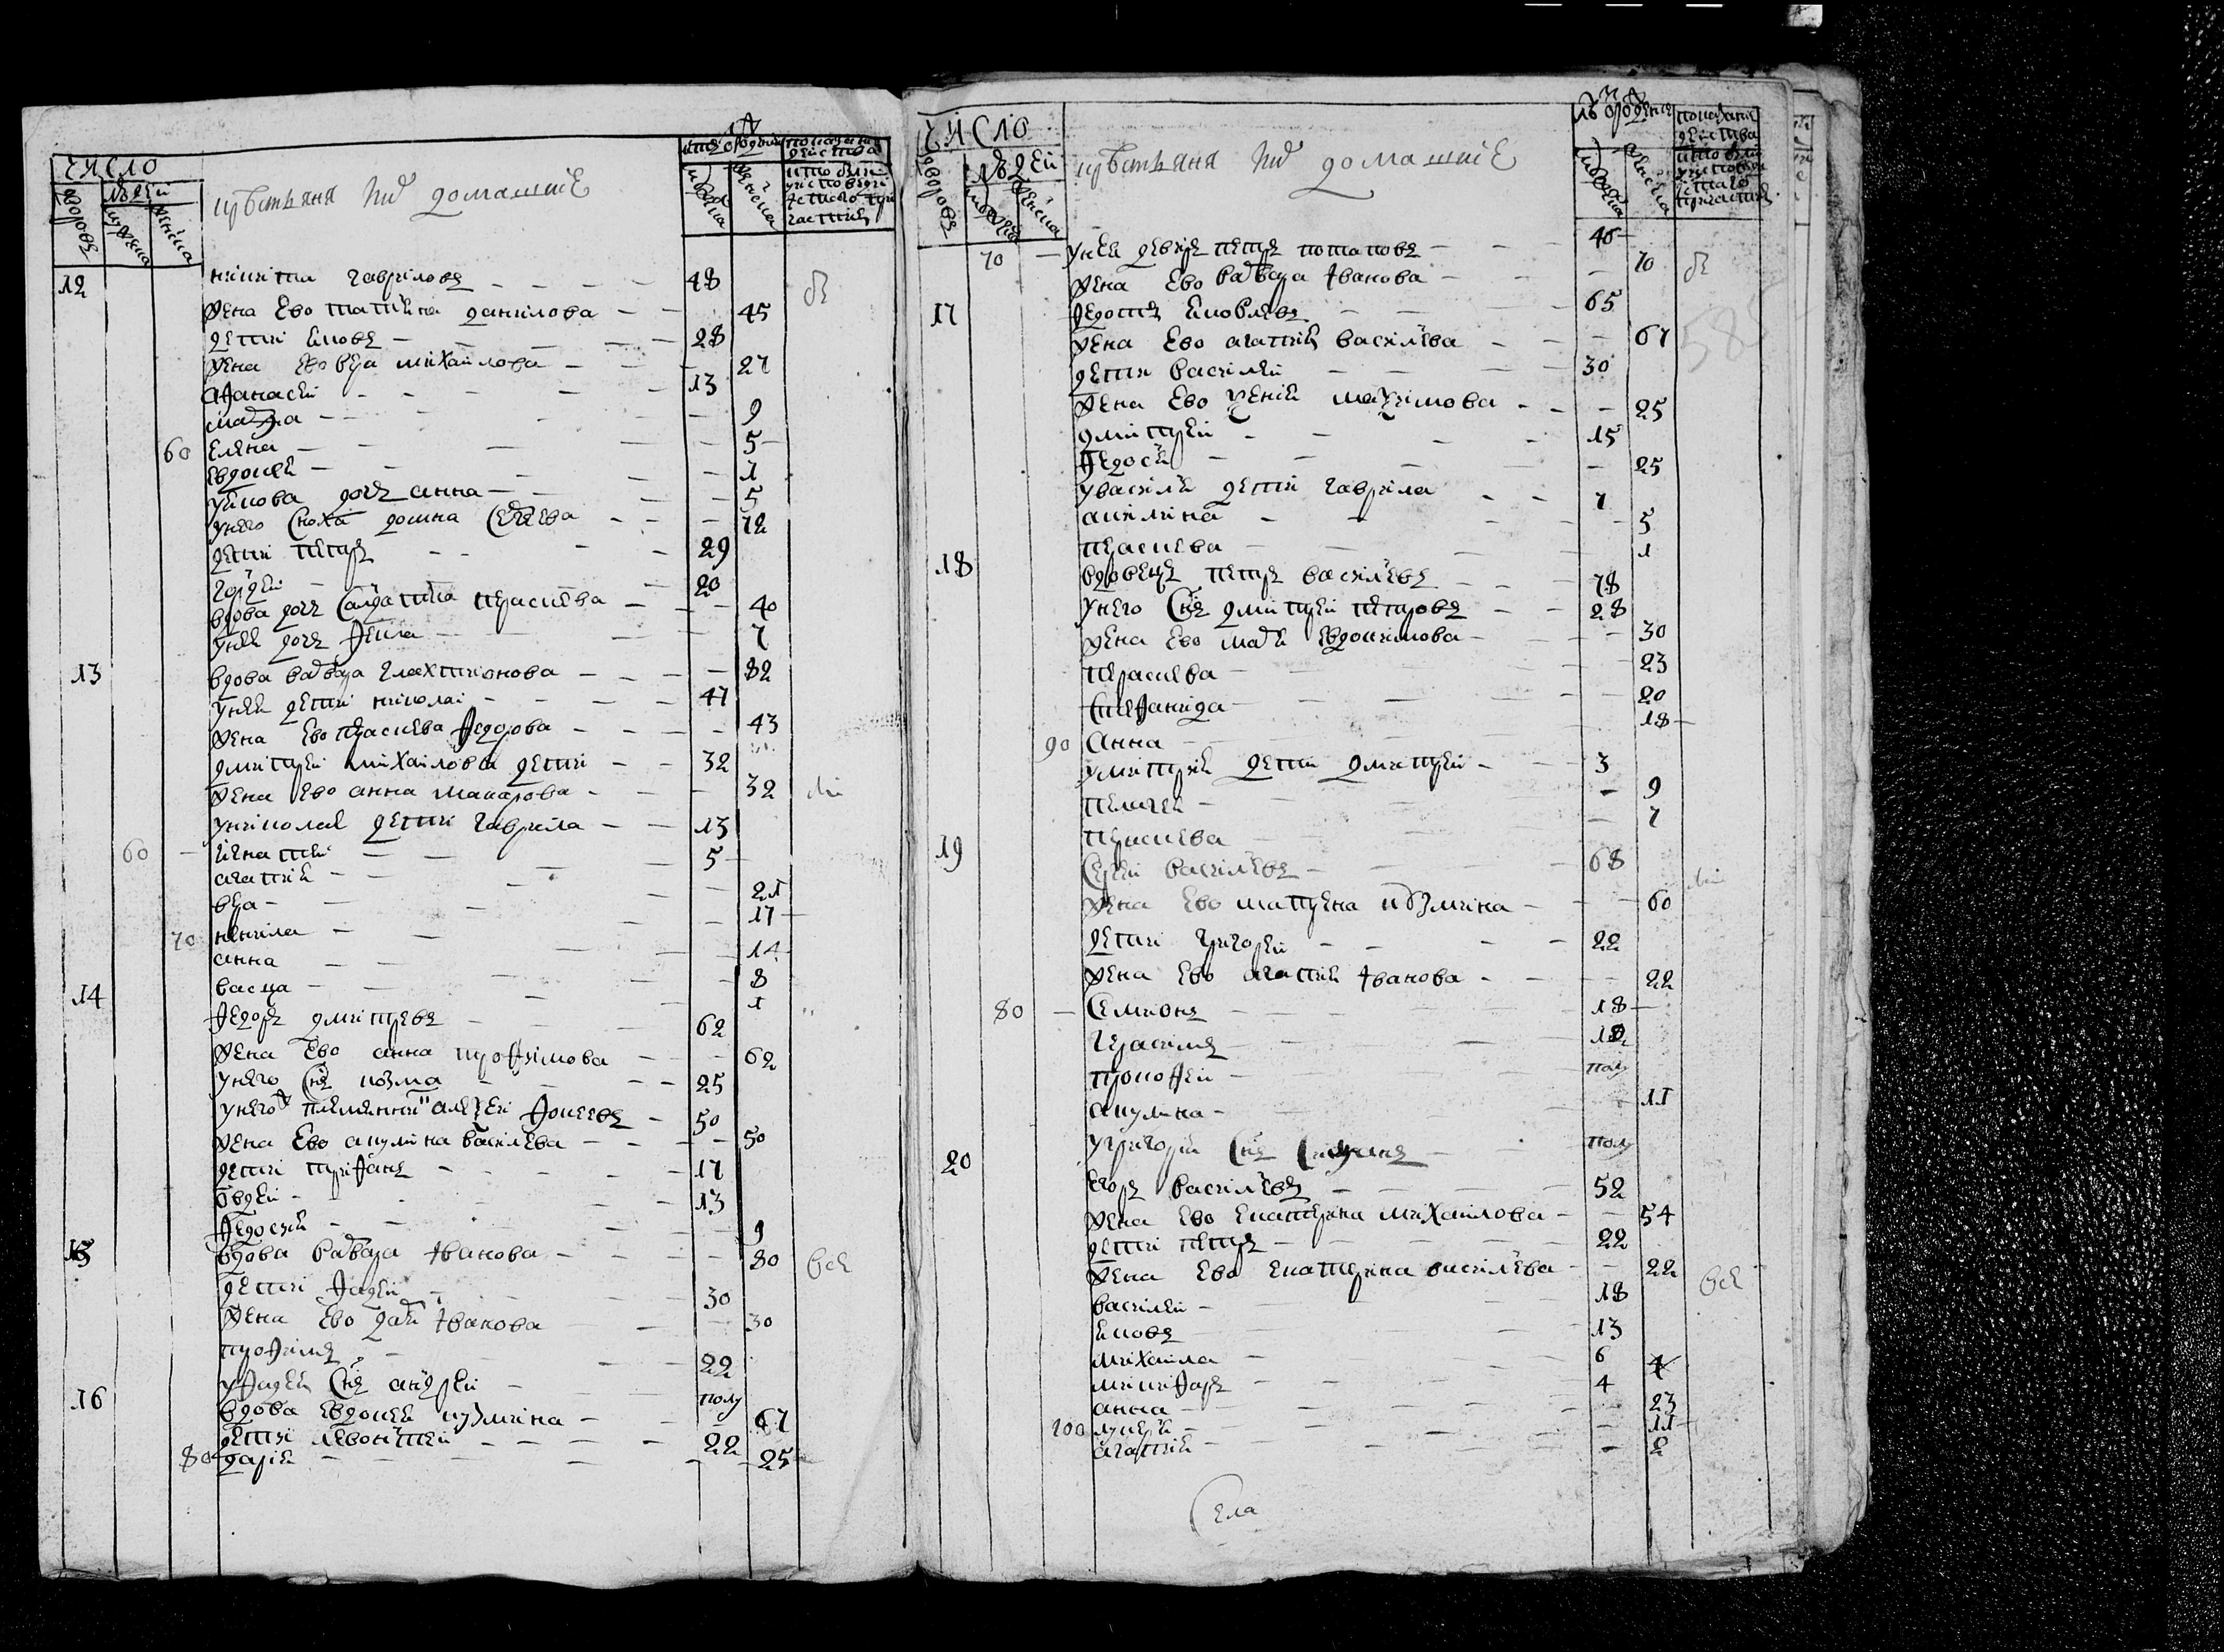 число
дворовъ
людей
мужска
женска
крестьяня и ихъ домашние
лѣта от рождения
мужска
женска
показание действа кто были у исповеди и святаго причастия
12 никита гавриловъ 48
жена ево татияна данилова 45
дети яковъ 28
жена ево вера михаилова 27
афанасеи 13
марфа 9
60 елена 5
евдокея 1
у якова дочь анна 5
у него сноха домна сергеева 72
дети петръ 29
гордеи 20
вдова дочь салдатка прасковья 40
у нее дочь фекла 7
13 вдова варвара галахтионова 82
у нея дети николаи 47
жена ево прасковья федорова 43
дмитреи михаиловы дети 32
жена ево анна макарова 32
у николая дети гаврила 13
60 игнатеи 5
агапия 21
вера 17
70 ненила 14
анна 8
васса 1
14 федоръ дмитревъ 62
жена ево анна трофимова 62
у него сынъ козма 25
у него племянникъ алексеи фокеевъ 50
жена ево акулина василева 50
дети трифанъ 17
овдеи 13
федосия 9
15 вдова варвара иванова 80
дети фадеи 30
жена ево дарья иванова 30
трофимъ 22
у фадея сынъ андреи полу
16 вдова евдокея кузмина 67
дети левонтеи 22
80 дария 25
число
дворовъ
людей
мужска
женска
крестьяня и ихъ домашние
лѣта от рождения
мужска
женска
показание действа кто были у исповеди и святаго причастия
70 у нея деверь петръ потаповъ 40
жена ево варвара иванова 70
17 федотъ яковлевъ 65
жена ево агапия василева 67
дети василеи 30
жена ево ксения максимова 25
дмитреи 15
федосья 25
у василя дети гаврила 7
акилина 5
прасковья 1
18 вдовецъ петръ василевъ 78
у него сынъ дмитреи петровъ 28
жена ево марья евдокимова 30
прасковья 23
степанида 20
90 анна 18
у дмитрия дети дмитреи 3
пелагея 9
прасковья 7
19 сергеи василевъ 68
жена ево матрена козмина 60
дети григореи 22
жена ево агапия иванова 22
80 семионъ 18
герасимъ
прокофеи полу
акулина 11
у григория сынъ полу
20 егоръ василевъ 52
жена ево екатерина михаилова 54
дети петръ 22
жена ево екатерина василева 22
василеи 18
яковъ 13
михаила 6
никифоръ 4
анна 23
100 лукерья 11
агапия 2
села